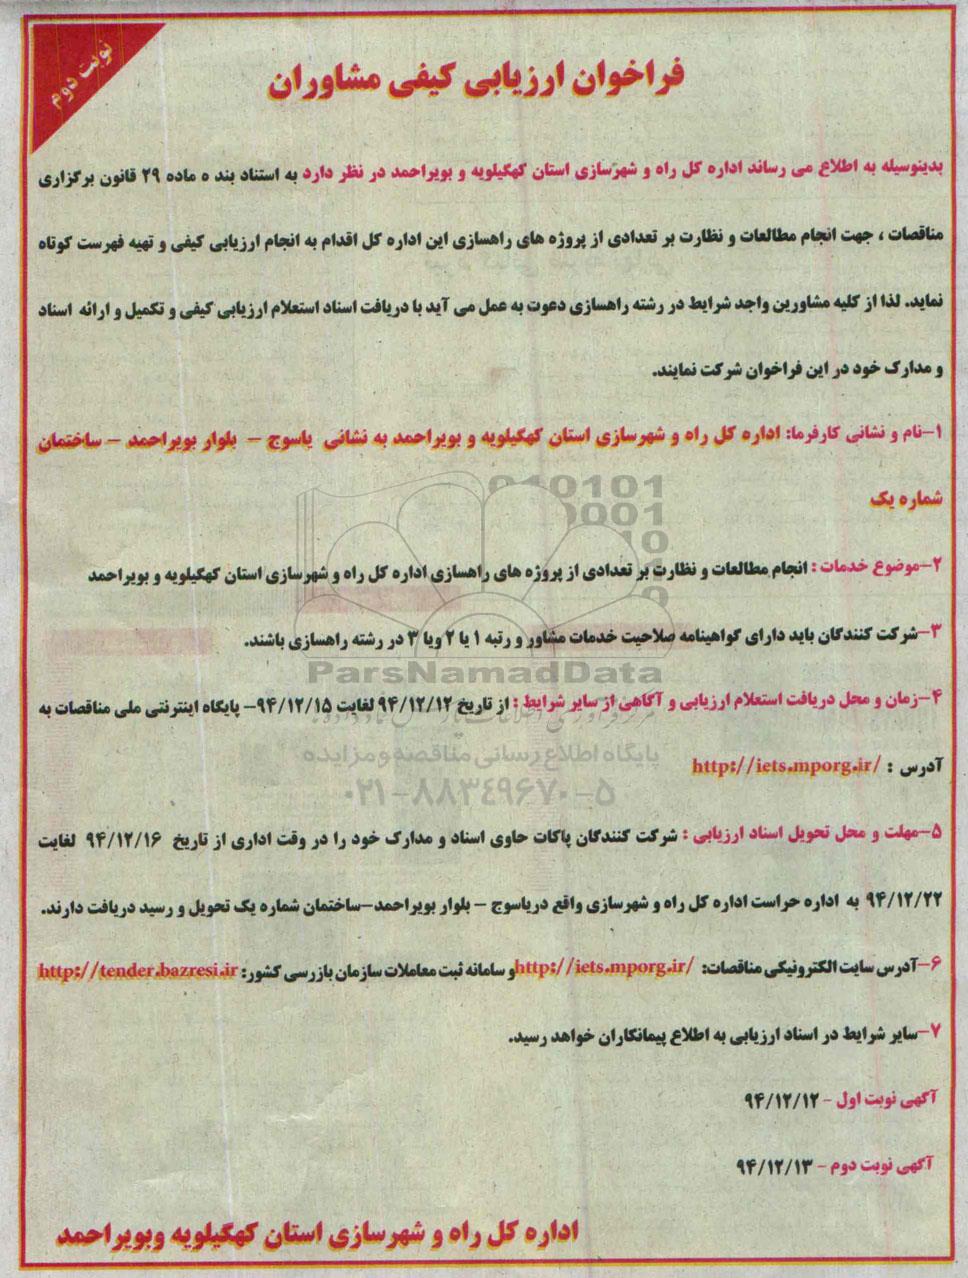 نوبت دوم
فراخوان ارزیابی کیفی مشاوران
بدینوسیله به اطلاع می رساند اداره کل راه و شهرسازی استان کهگیلویه و بویراحمد در نظر دارد به استناد بند ه ماده ۲۹ قانون برگزاری
مناقصات ، جهت انجام مطالعات و نظارت بر تعدادی از پروژه های راهسازی این اداره کل اقدام به انجام ارزیابی کیفی و تهیه فهرست کوتاه
نماید. لذا از کلیه مشاورین واجد شرایط در رشته راهسازی دعوت به عمل می آید با دریافت اسناد استعلام ارزیابی کیفی و تکمیل و ارائه اسناد
و مدارک خود در این فراخوان شرکت نمایند.
۱-نام و نشانی کارفرما: اداره کل راه و شهرسازی استان کهگیلویه و بویراحمد به نشانی یاسوج – بلوار بویراحمد – ساختمان
شماره یک
۲-موضوع خدمات : انجام مطالعات و نظارت بر تعدادی از پروژه های راهسازی اداره کل راه و شهرسازی استان کهگیلویه و بویراحمد
۳-شرکت کنندگان باید دارای گواهینامه صلاحیت خدمات مشاور و رتبه ۱ یا ۲ ویا ۳ در رشته راهسازی باشند.
ParsNamadData
۴-زمان و محل دریافت استعلام ارزیابی و آگاهی از سایر شرایط : از تاریخ ۹۴/۱۲/۱۲ لغایت ۹۴/۱۲/۱۵- پایگاه اینترنتی ملی مناقصات به
پایگاه اطلاع رسانی مناقصه و مزایده
آدرس : http://iets.mporg.ir/
۰۲۱-۸۸۳۴۹۶۷۰-۵
۵-مهلت و محل تحویل اسناد ارزیابی : شرکت کنندگان پاکات حاوی اسناد و مدارک خود را در وقت اداری از تاریخ ۹۴/۱۲/۱۶ لغایت
۹۴/۱۲/۲۲ به اداره حراست اداره کل راه و شهرسازی واقع دریاسوج – بلوار بویراحمد-ساختمان شماره یک تحویل و رسید دریافت دارند.
۶-آدرس سایت الکترونیکی مناقصات: http://iets.mporg.ir/ و سامانه ثبت معاملات سازمان بازرسی کشور: http://tender.bazresi.ir
۷-سایر شرایط در اسناد ارزیابی به اطلاع پیمانکاران خواهد رسید.
آگهی نوبت اول - ۹۴/۱۲/۱۲
آگهی نوبت دوم - ۹۴/۱۲/۱۳
اداره کل راه و شهرسازی استان کهگیلویه وبویراحمد